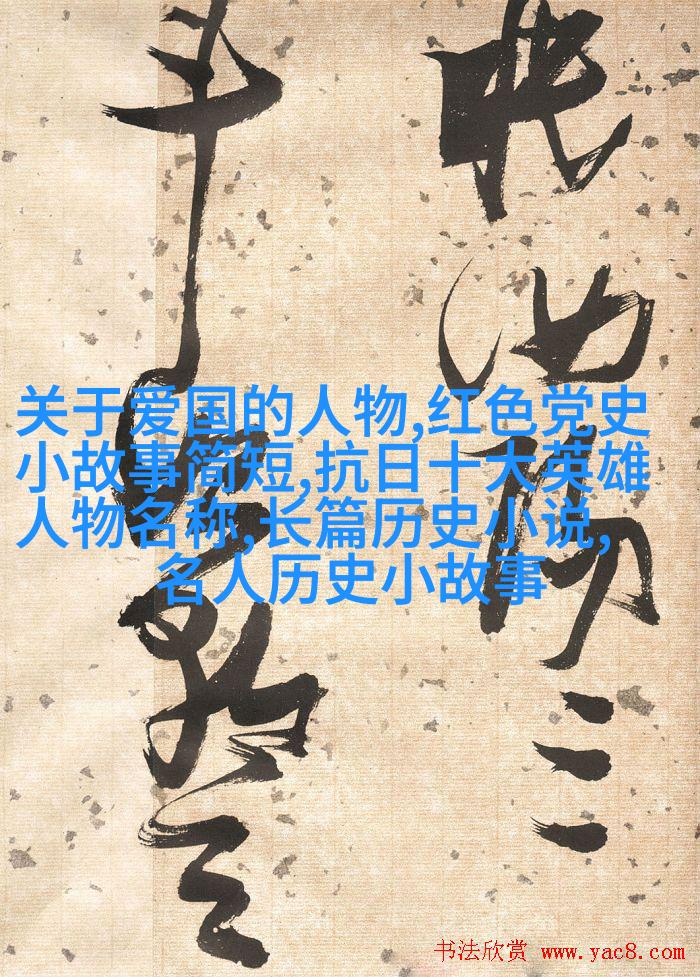 眠汝陽三
斗始朝天
关于爱国的人物,红色党史
小故事简短,抗日十大英雄
人物名称,长篇历史小说,
名人历史小故事
书法欣赏 www.yac8.com